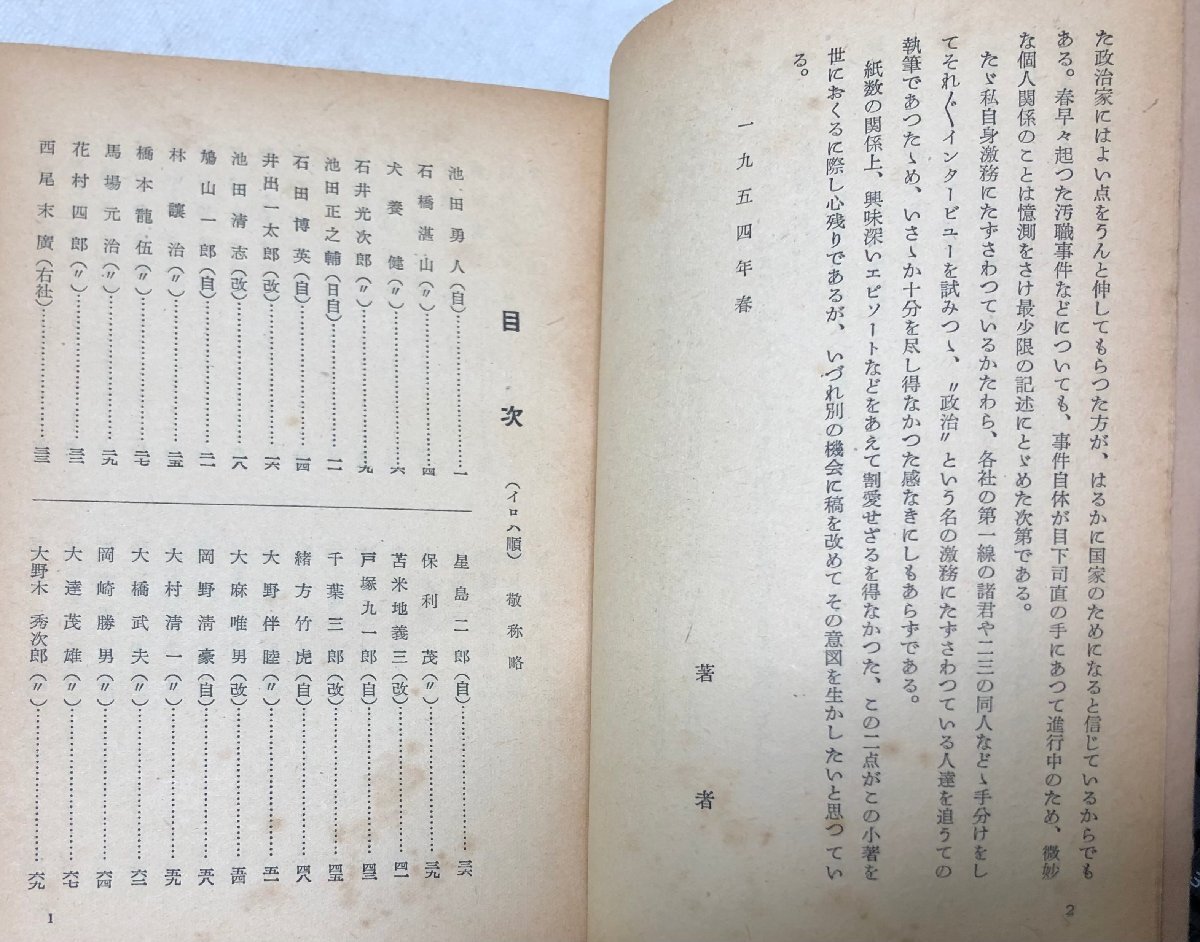 た政治家にはよい点をうんと伸してもらつた方が、はるかに国家のためになると信じているからでも
ある。春早々起つた汚職事件などについても、事件自体が目下司直の手にあつて進行中のため、微妙
な個人関係のことは憶測をさけ最少限の記述にとゞめた次第である。
たゞ私自身激務にたずさわつているかたわら、各社の第一線の諸君や二三の同人などゝ手分けをし
てそれ〴〵インタービューを試みつゝ、〃政治〃という名の激務にたずさわつている人達を追うての
執筆であつたゝめ、いさゝか十分を尽し得なかつた感なきにしもあらずである。
紙数の関係上、興味深いエピソートなどをあえて割愛せざるを得なかつた、この二点がこの小著を
世におくるに際し心残りであるが、いづれ別の機会に稿を改めてその意図を生かしたいと思つてい
る。
一九五四年春
著者
2
目次 (イロハ順) 敬称略
池田勇人(自)……一
石橋湛山(〃)……四
犬養健(〃)……六
石井光次郎(〃)……九
池田正之輔(日自)……一一
石田博英(自)……一四
井出一太郎(改)……一六
池田清志(改)……一八
鳩山一郎(自)……二一
林譲治(〃)……二五
橋本龍伍(〃)……二七
馬場元治(〃)……二九
花村四郎(〃)……三一
西尾末廣(右社)……三三
星島二郎(自)……三六
保利茂(〃)……三九
苫米地義三(改)……四一
戸塚九一郎(自)……四三
千葉三郎(改)……四五
緒方竹虎(自)……四八
大野伴睦(〃)……五一
大麻唯男(改)……五四
岡野清豪(自)……五八
大村清一(〃)……五九
大橋武夫(〃)……六二
岡崎勝男(〃)……六四
大達茂雄(〃)……六七
大野木秀次郎(〃)……六九
1